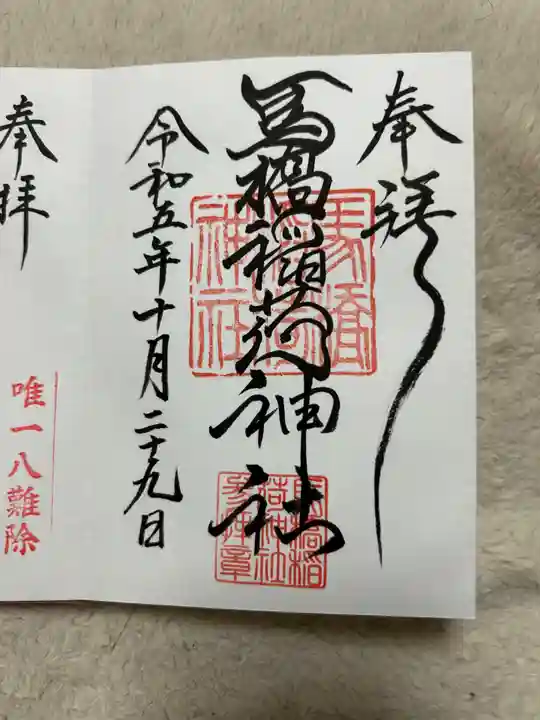 奉拝
馬橋稲荷神社
馬橋稲荷神社
馬橋稲荷神社参拝章
令和五年十月二十九日
奉拝
唯一八難除